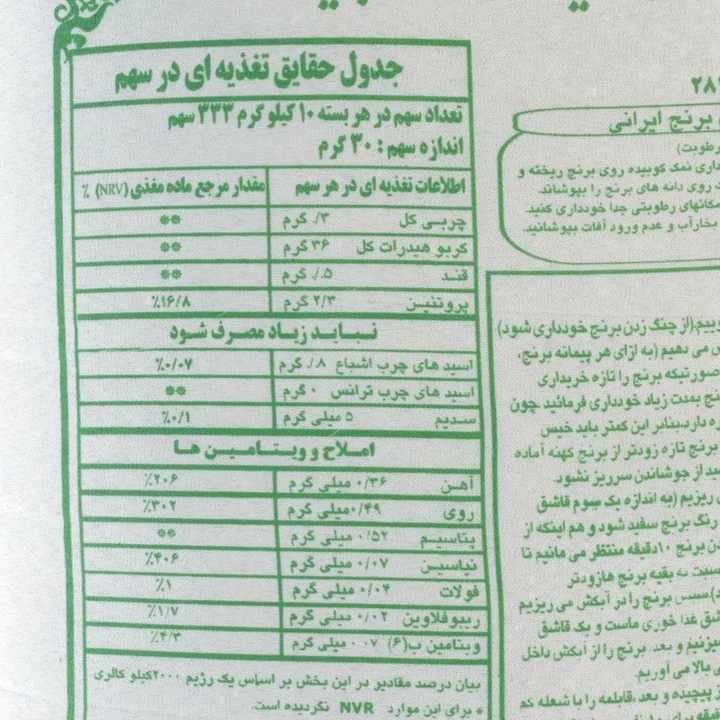 جدول حقایق تغذیه ای در سهم
تعداد سهم در هر بسته ۱۰ کیلو گرم ۳۳۳ سهم
اندازه سهم : ۳۰ گرم
اطلاعات تغذیه ای در هر سهم مقدار مرجع ماده مغذی (NRV) ٪
چربی کل ۳/. گرم **
کربو هیدرات کل ۳۶ گرم **
قند ۵/. گرم **
پروتئین ۲/۳ گرم ٪۱۶/۸
نباید زیاد مصرف شود
اسید های چرب اشباع ۸/. گرم ٪۰/۰۷
اسید های چرب ترانس ۰ گرم **
سدیم ۵ میلی گرم ٪۰/۱
املاح و ویتامین ها
آهن ۰/۳۶ میلی گرم ٪۲۰۶
روی ۰/۴۹ میلی گرم ٪۳۰۲
پتاسیم ۰/۵۲ میلی گرم **
نیاسین ۰/۰۷ میلی گرم ٪۴۰۶
فولات ۰/۰۴ میلی گرم ٪۱
ریبوفلاوین ۰/۰۲ میلی گرم ٪۱/۷
ویتامین ب(۶) ۰/۰۷ میلی گرم ٪۴/۳
بیان درصد مقادیر در این بخش بر اساس یک رژیم ۲۰۰۰ کیلو کالری
* برای این موارد NVR نگردیده است.
۲۸
برنج ایرانی
رطوبت)
داری نمک کوبیده روی برنج ریخته و
روی دانه های برنج را بپوشاند.
مکانهای رطوبتی جدا خودداری کنید.
بخارآب و عدم ورود آفات بپوشانید.
ییم.(از چنگ زدن برنج خودداری شود)
می دهیم (به ازای هر پیمانه برنج،
صورتیکه برنج را تازه خریداری
نج بمدت زیاد خودداری فرمائید چون
ه دارد.بنابر این کمتر باید خیس
برنج تازه زودتر از برنج کهنه آماده
ید از جوشاندن سرریز نشود.
ریزیم (به اندازه یک سوم قاشق
رنگ برنج سفید شود و هم اینکه از
ن برنج ۱۰دقیقه منتظر می مانیم تا
سبت به بقیه برنج هازودتر
د).سپس برنج را در آبکش می ریزیم
شق غذا خوری ماست و یک قاشق
میزنیم و بعد، برنج را از آبکش داخل
ی بالا می آوریم.
پیچیده و بعد، قابلمه را با شعله کم